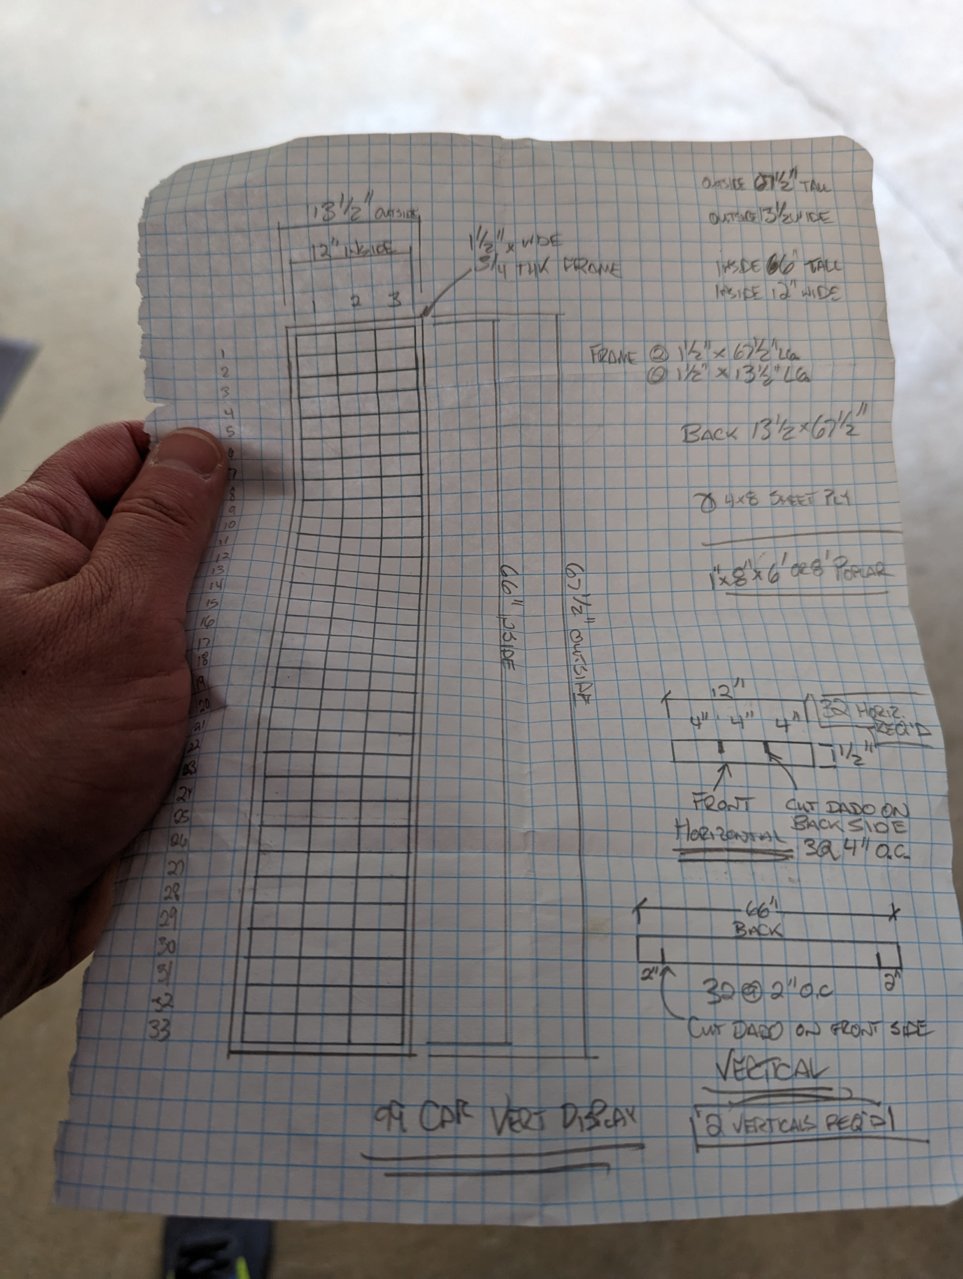 13 1/2" OUTSIDE
12" INSIDE
1 2 3
1 1/2" x WIDE
3/4 THK FRAME
OUTSIDE 67 1/2" TALL
OUTSIDE 13 1/2 WIDE
INSIDE 66" TALL
INSIDE 12" WIDE
FRAME ② 1 1/2" x 67 1/2" LG
② 1 1/2" x 13 1/2" LG
BACK 13 1/2 x 67 1/2"
4x8 SHEET PLY
1" x 8" x 6' OR 8' POPLAR
1
2
3
4
5
6
7
8
9
10
11
12
13
14
15
16
17
18
19
20
21
22
23
24
25
26
27
28
29
30
31
32
33
66" INSIDE
67 1/2" OUTSIDE
12"
4" 4" 4"
32 HORIZ.
REQ'D
1 1/2"
FRONT
HORIZONTAL
CUT DADO ON
BACK SIDE
3@ 4" O.C.
66"
BACK
2" 2"
32 @ 2" O.C
CUT DADO ON FRONT SIDE
VERTICAL
2 VERTICALS REQ'D
99 CAR VERT DISPLAY